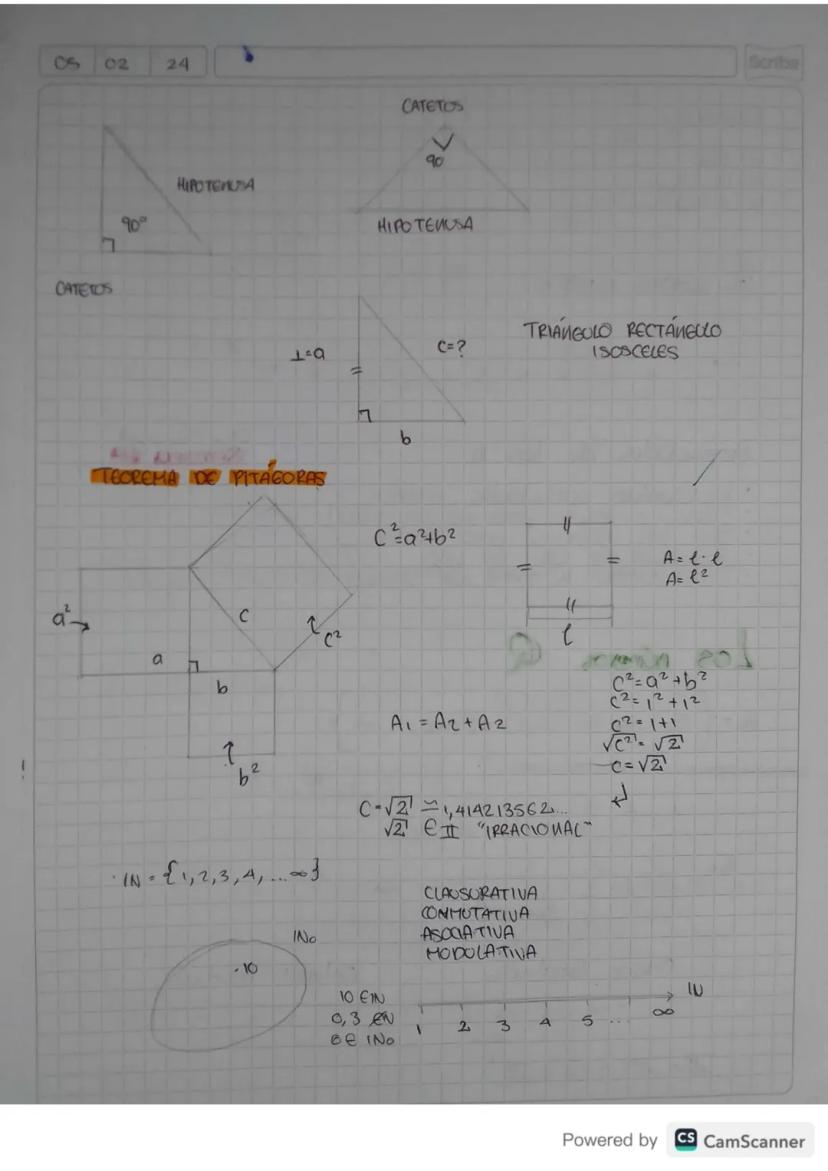 05 02 24
Scribe
CATETOS
90
HIPOTENUSA
90°
HIPOTENUSA
CATETOS
1=a
C=?
TRIÁNGULO RECTÁNGULO
ISOSCELES
b
TEOREMA DE PITÁGORAS
C²=a²+b²
A= l·l
A= l²
l
a²
a
c
c²
b
b²
A₁ = A₂ + A₂
C²=a²+b²
C²=1²+1²
C²=1+1
√C²=√2
C=√2
C=√2 ≃1,414213562...
√2 ∈ II "IRRACIONAL"
IN = {1,2,3,4,...∞}
CLAUSURATIVA
CONMUTATIVA
ASOCIATIVA
MODULATIVA
INo
.10
10 ∈ IN
0,3 ∉ IN
0 ∈ INo
1 2 3 4 5 ... ∞ IN
Powered by CS CamScanner